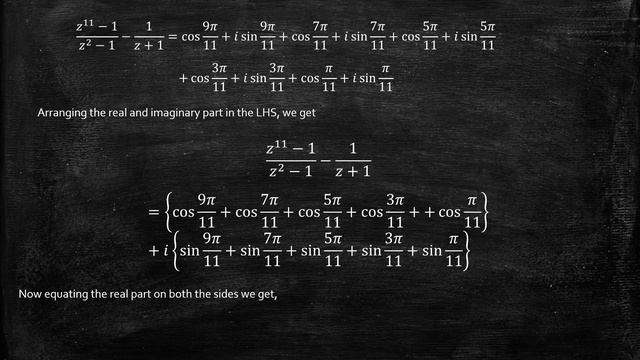 (z¹¹ − 1)/(z² − 1) − 1/(z + 1) = cos 9π/11 + i sin 9π/11 + cos 7π/11 + i sin 7π/11 + cos 5π/11 + i sin 5π/11
+ cos 3π/11 + i sin 3π/11 + cos π/11 + i sin π/11
Arranging the real and imaginary part in the LHS, we get
(z¹¹ − 1)/(z² − 1) − 1/(z + 1)
= {cos 9π/11 + cos 7π/11 + cos 5π/11 + cos 3π/11 + + cos π/11}
+ i {sin 9π/11 + sin 7π/11 + sin 5π/11 + sin 3π/11 + sin π/11}
Now equating the real part on both the sides we get,